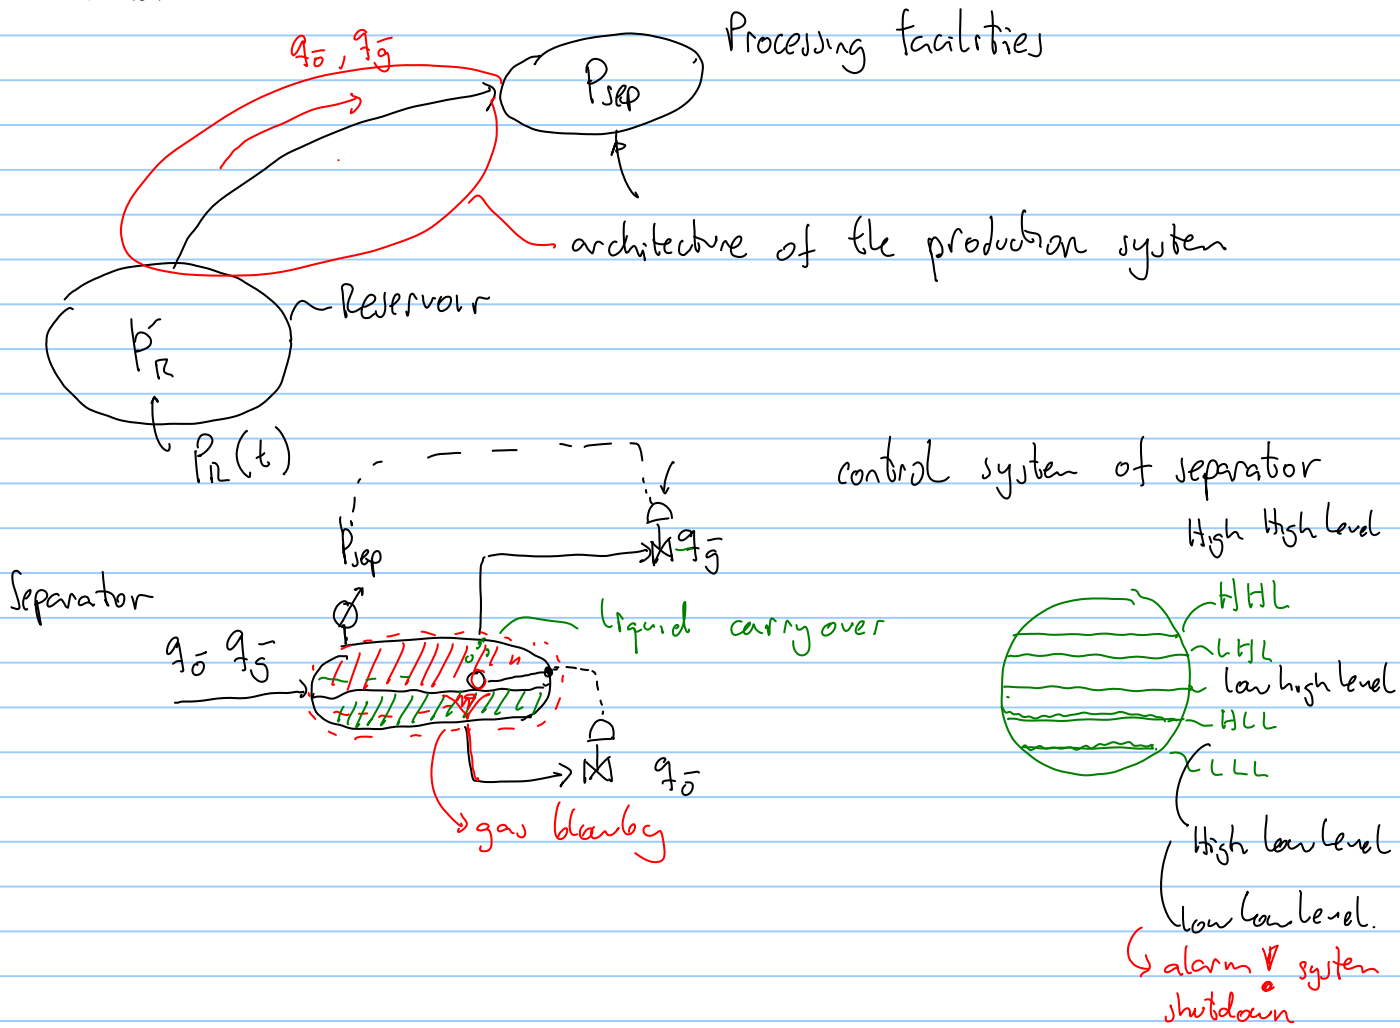 Processing facilities
qō, qḡ
Psep
architecture of the production system
Reservoir
PR
PR(t)
control system of separator
High High Level
Psep
qḡ
Separator
HHL
liquid carryover
LHL
qō qḡ
low high level
HLL
LLL
qō
gas blowby
High low Level
Low Low Level.
alarm ! system
shutdown